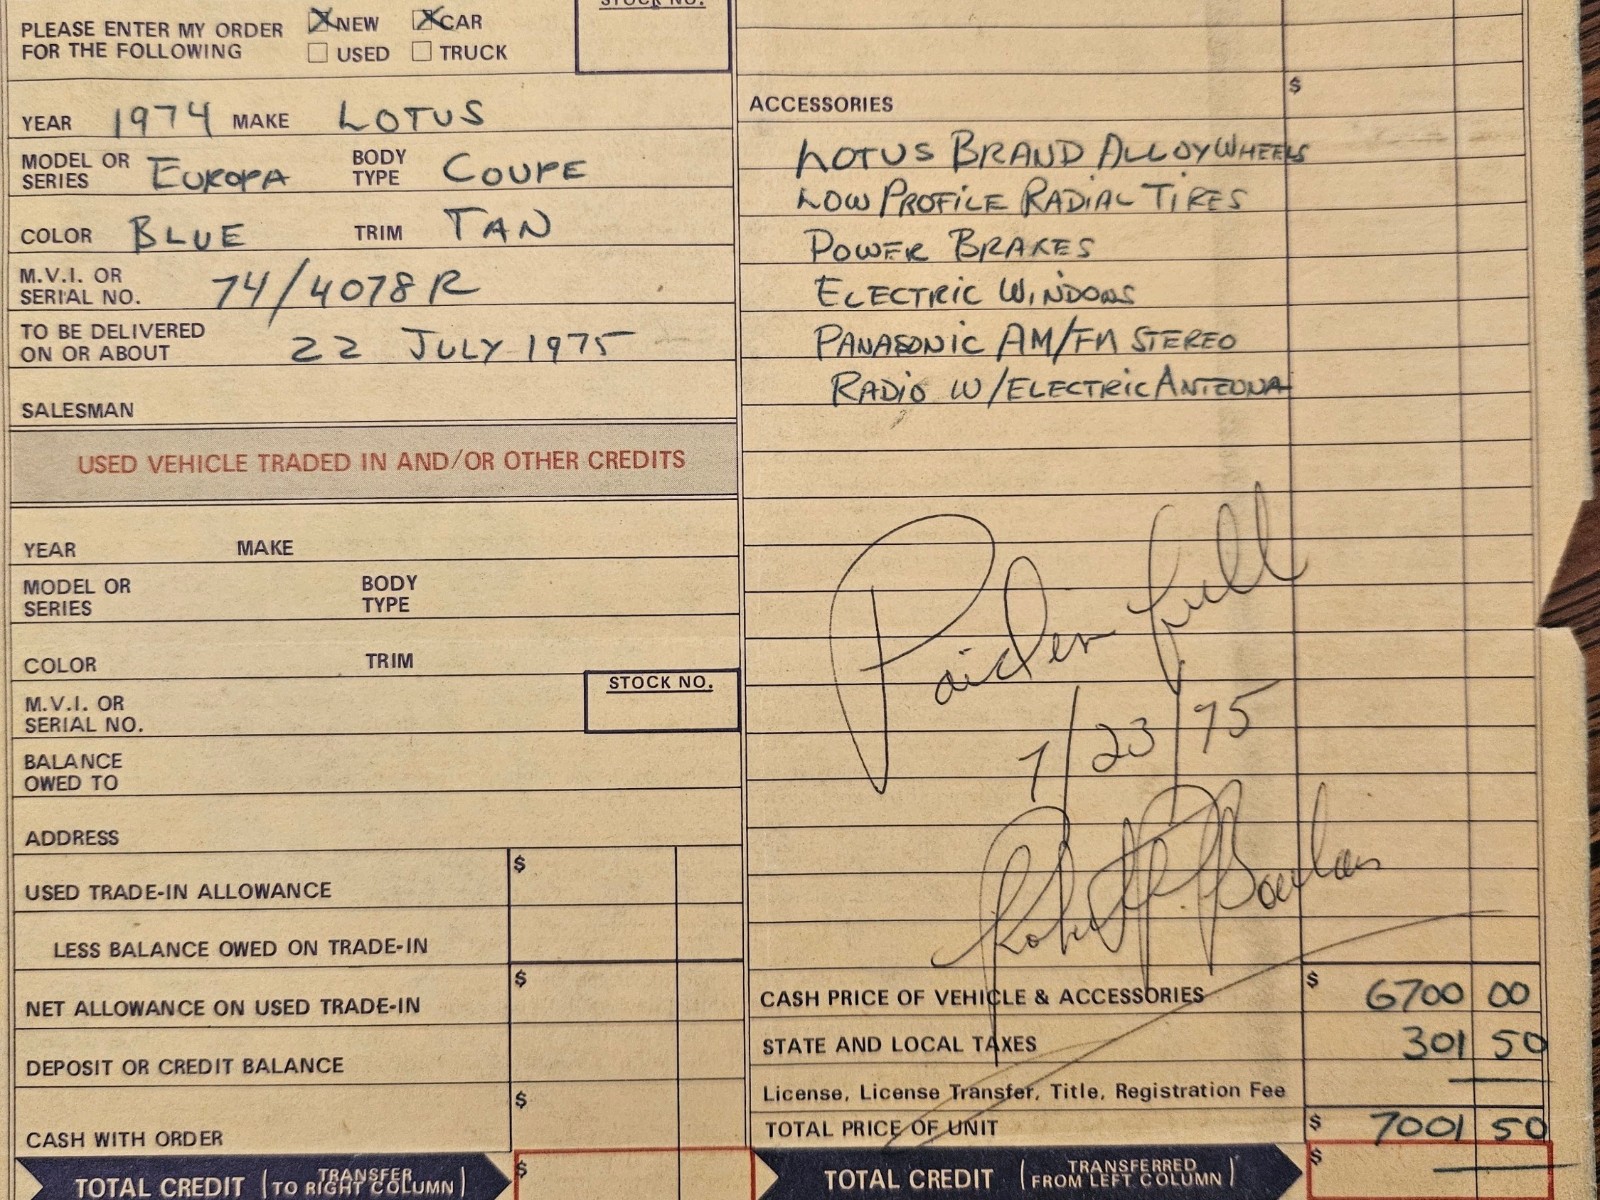 PLEASE ENTER MY ORDER
FOR THE FOLLOWING
X NEW X CAR
USED TRUCK
STOCK NO.
YEAR 1974 MAKE LOTUS
MODEL OR SERIES EUROPA BODY TYPE COUPE
COLOR BLUE TRIM TAN
M.V.I. OR SERIAL NO. 74/4078R
TO BE DELIVERED ON OR ABOUT 22 JULY 1975
SALESMAN
USED VEHICLE TRADED IN AND/OR OTHER CREDITS
YEAR MAKE
MODEL OR SERIES BODY TYPE
COLOR TRIM
M.V.I. OR SERIAL NO. STOCK NO.
BALANCE OWED TO
ADDRESS
USED TRADE-IN ALLOWANCE $
LESS BALANCE OWED ON TRADE-IN
NET ALLOWANCE ON USED TRADE-IN $
DEPOSIT OR CREDIT BALANCE
CASH WITH ORDER $
TOTAL CREDIT (TRANSFER TO RIGHT COLUMN) $
ACCESSORIES $
LOTUS BRAND ALLOY WHEELS
LOW PROFILE RADIAL TIRES
POWER BRAKES
ELECTRIC WINDOWS
PANASONIC AM/FM STEREO
RADIO W/ELECTRIC ANTENNA
Paid en full
7/23/75
CASH PRICE OF VEHICLE & ACCESSORIES $ 6700 00
STATE AND LOCAL TAXES 301 50
License, License Transfer, Title, Registration Fee
TOTAL PRICE OF UNIT $ 7001 50
TOTAL CREDIT (TRANSFERRED FROM LEFT COLUMN) $